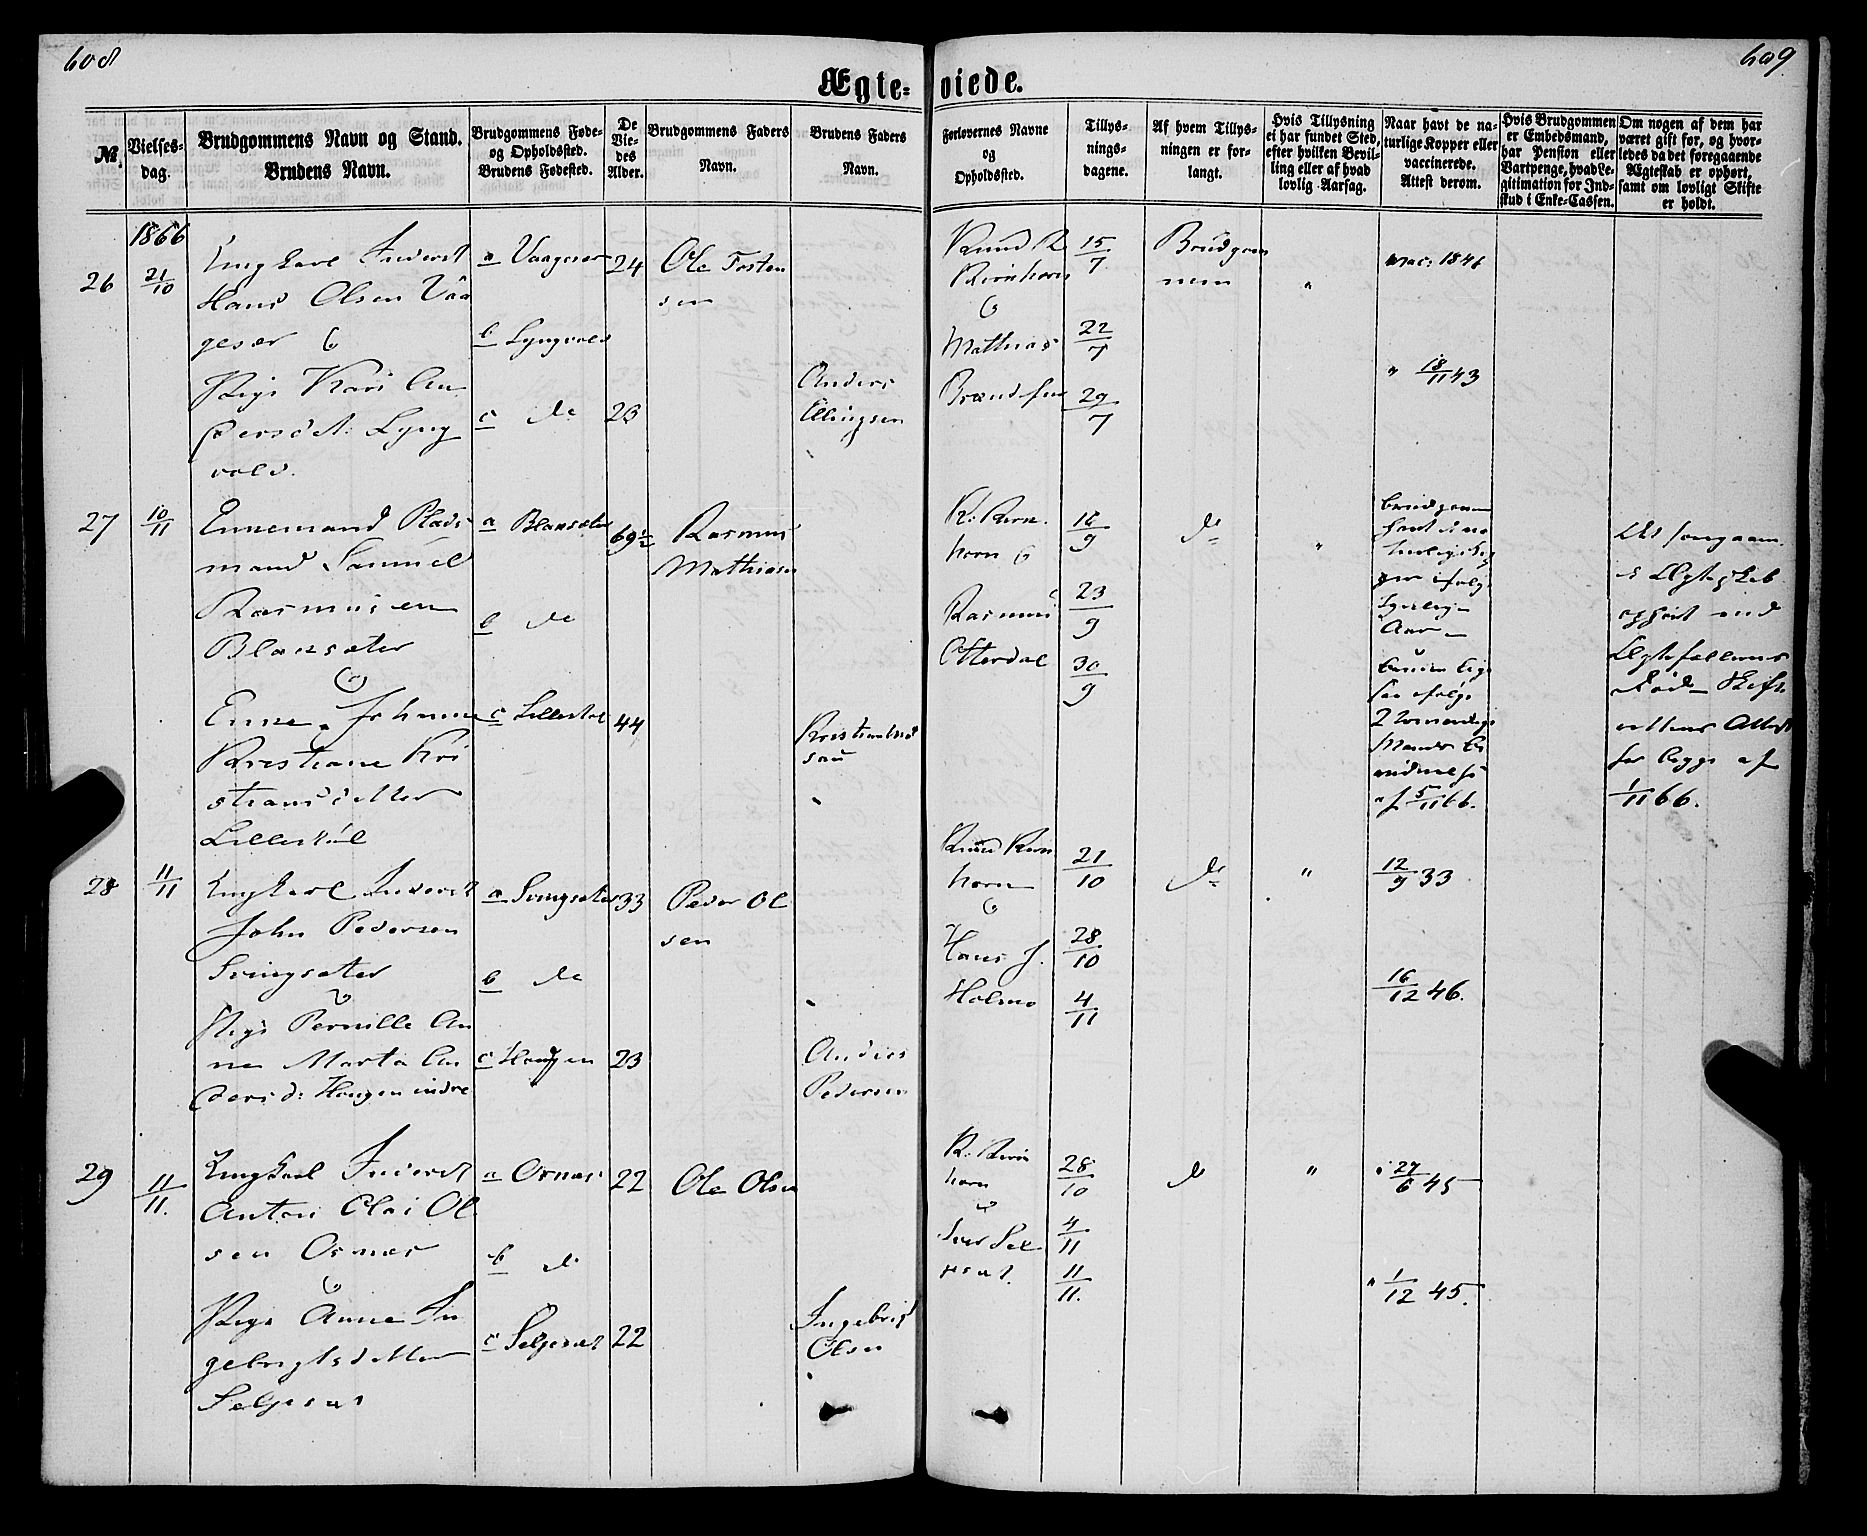 608
609
Ægte=viede.
№
Vielses-
dag.
Brudgommens Navn og Stand.
Brudens Navn.
Brudgommens Føde-
og Opholdssted.
Brudens Fødested.
De
Vie-
des
Alder.
Brudgommens Faders
Navn.
Brudens Faders
Navn.
Forlovernes Navne
og
Opholdssted.
Tillys-
nings-
dagene.
Af hvem Tillys-
ningen er for-
langt.
Hvis Tillysning
ei har fundet Sted,
efter hvilken Bevil-
ling eller af hvad
lovlig Aarsag.
Naar havt de na-
turlige Kopper eller
vaccinerede.
Attest derom.
Hvis Brudgommen
er Embedsmand,
har Pension eller
Vartpenge, hvad Le-
gitimation for Ind-
skud i Enke-Cassen.
Om nogen af dem har
været gift før, og hvor-
ledes da det foregaaende
Ægteskab er ophørt,
samt om lovligt Skifte
er holdt.
1866
26
21/10
Ungkarl Inderst
Hans Olsen Vaa
geser &
Pige Kari An
dersdt: Lyng
vold.
a Vaageser
b Lyngvold
c do
24
23
Ole Tosten
sen
Anders
Ellingsen
Knud K
Kirnhorn
&
Mathias
15/7
22/7
29/7
Brudgom
men
"
vac: 1846
" 18/11 43
27
10/11
Enkemand Plads
mand Samuel
Rasmusen
Blansæter
&
Enke Johanne
Kristiane Kri
stiansdatter
Lillestøl
a Blansæter
b do
c Lillestøl
69½
44
Rasmus
Mathiasen
K: Kirn
horn &
Rasmus
Otterdal
16/9
23/9
30/9
do
"
Brudgommen
Aar
af 5/11 66.
Det foregaaen
de Ægteskab
ophørt ved
Ægtefællernes
Død Skifte
rettens Attest
for begge af
1/11 66.
28
11/11
Ungkarl Inderst
John Pedersen
Svingsæter
&
Pige Pernille An
ne Marta An
dersd: Haugen indre
a Svingsæter
b do
c Haugen
33
23
Peder Ol
sen
Anders
Pedersen
Knud Kirn
horn
&
Hans J.
Holmø
21/10
28/10
4/11
do
"
12/9 33
16/12 46.
29
11/11.
Ungkarl Inderst
Anton Olai Ol
sen Osnes
&
Pige Anne In
gebrigtsdatter
Seljeset
a Osnes
b do
c Seljeset
22
22
Ole Olsen
Ingebrigt
Olsen
K: Kirn
horn
&
Iver Sel
jeset.
28/10
4/11
11/11.
do
"
27/6 45
" 1/12 45.